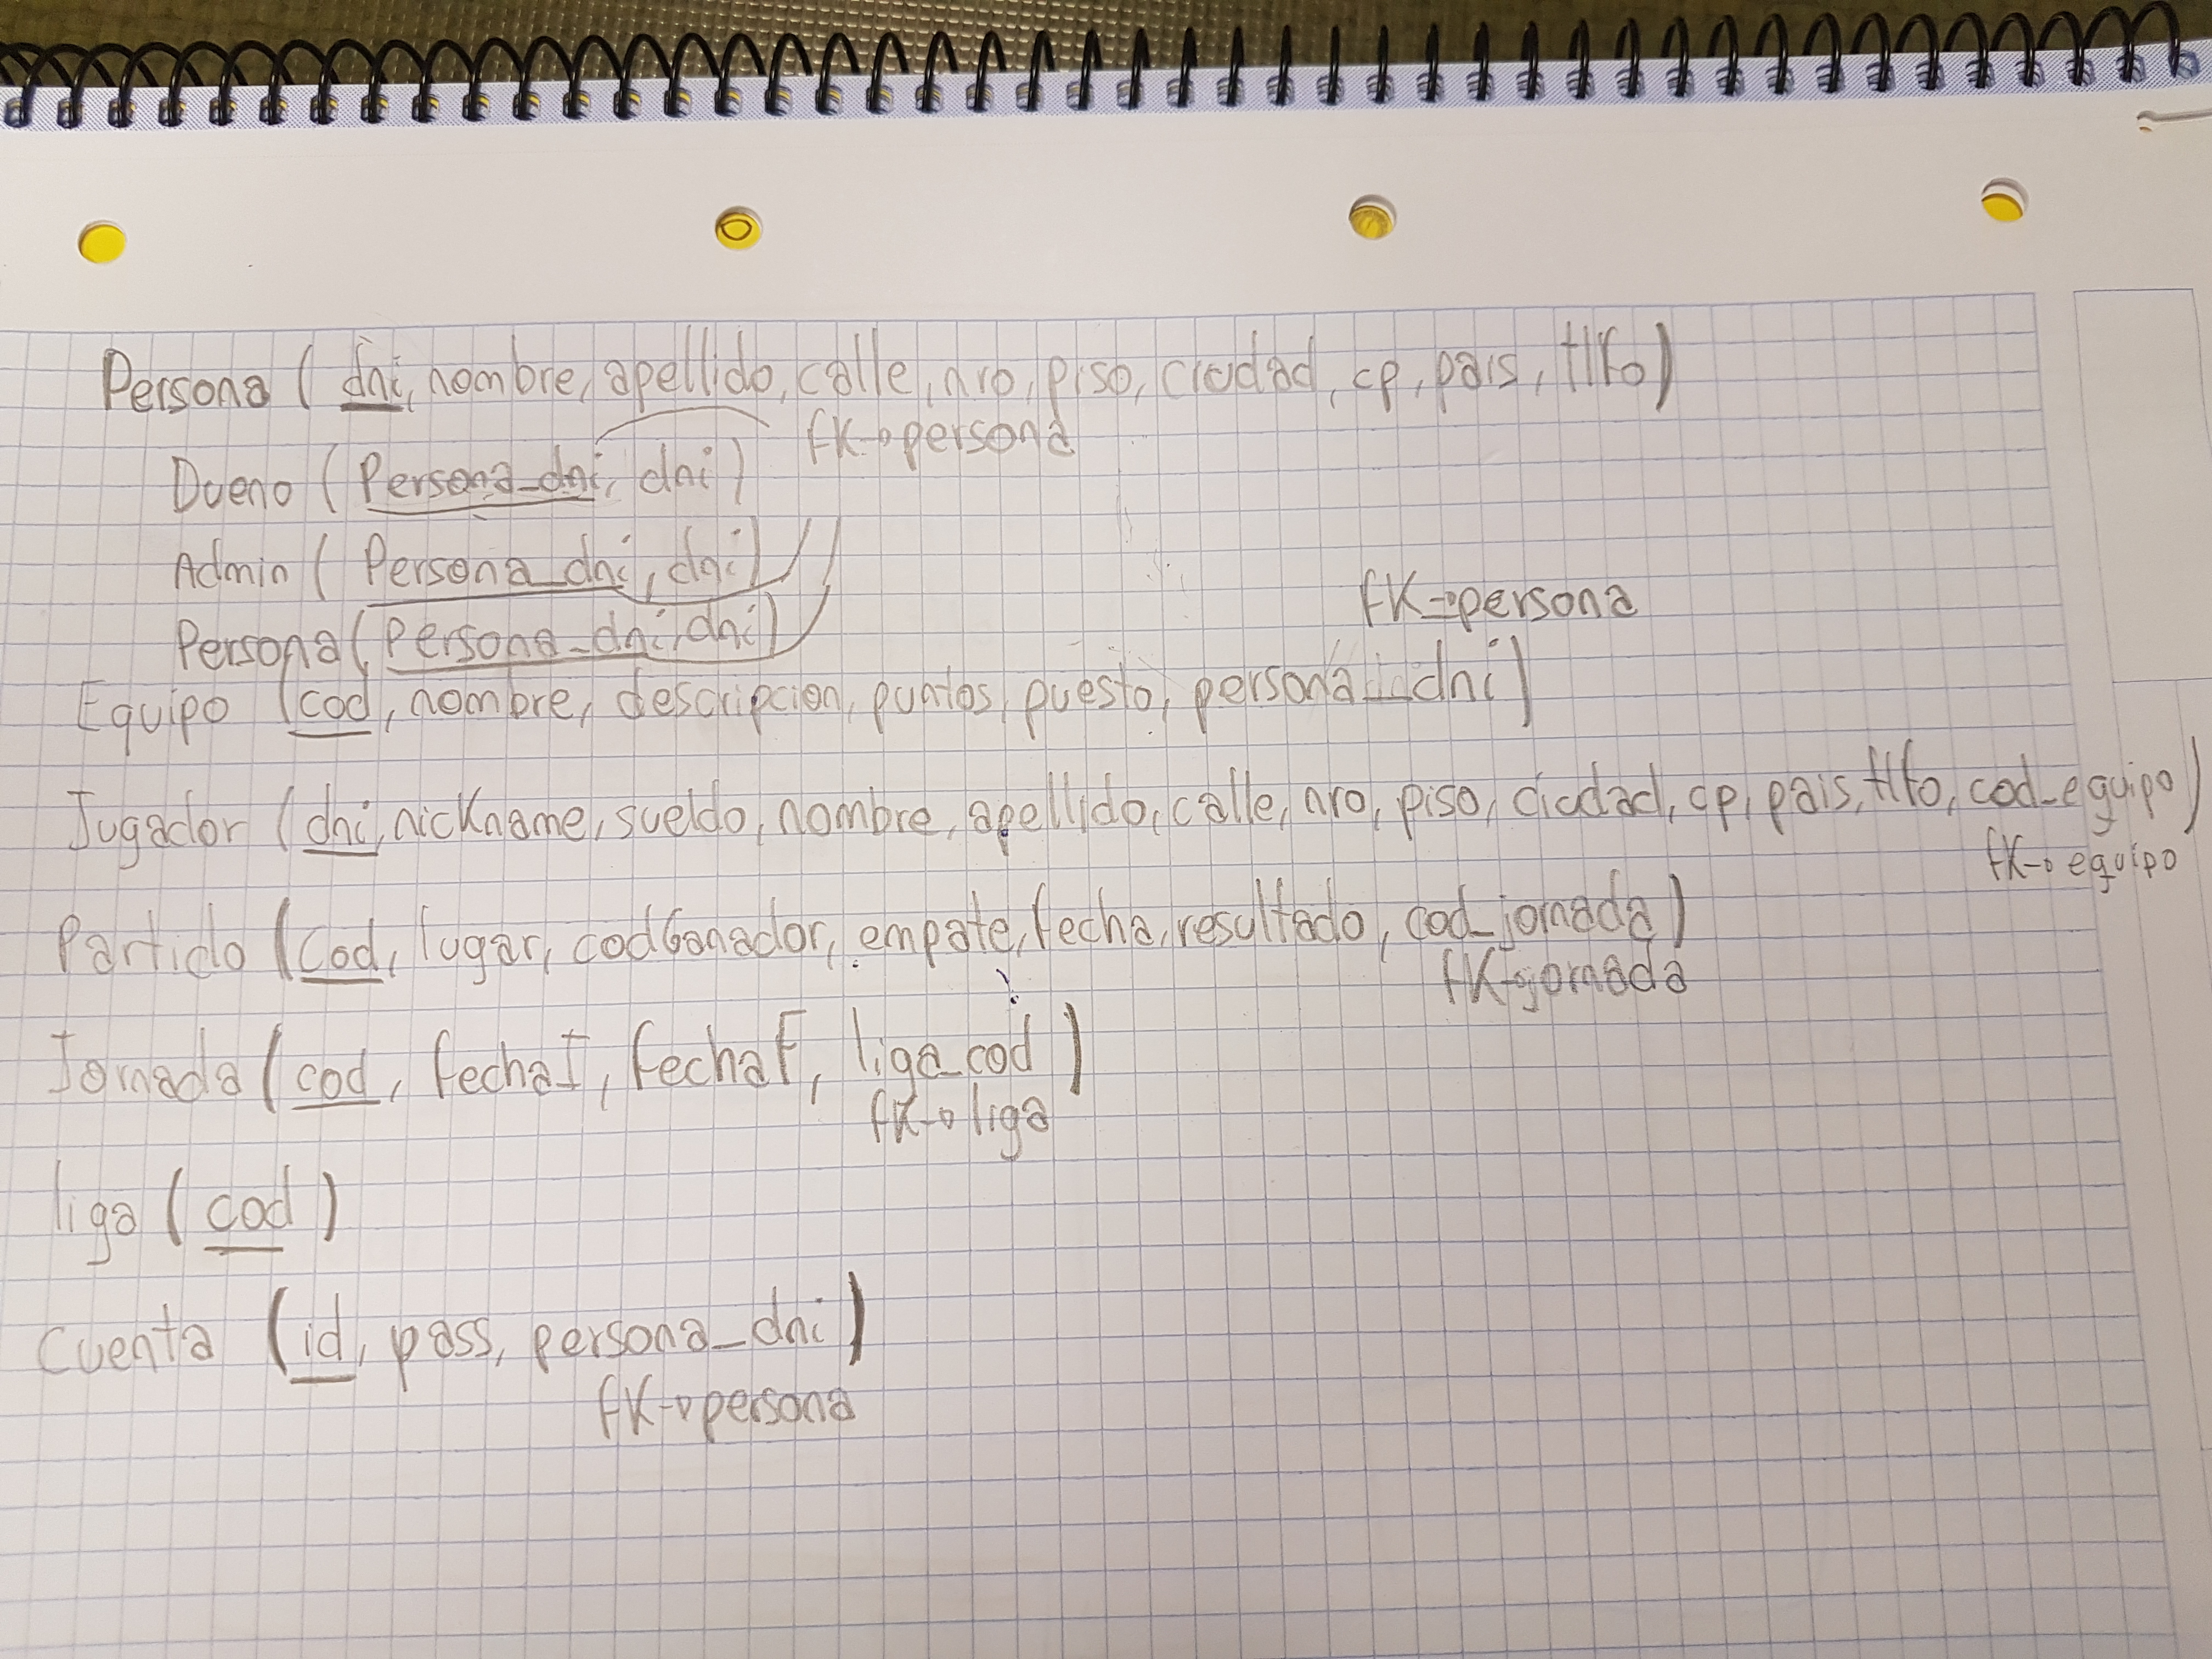 Persona (dni, nombre, apellido, calle, nro, piso, ciudad, cp, pais, tlfo)
fK→persona
Dueno (Persona_dni, dni)
Admin (Persona_dni, dni)
fK→persona
Persona (Persona_dni, dni)
Equipo (cod, nombre, descripcion, puntos, puesto, persona_dni)
Jugador (dni, nickname, sueldo, nombre, apellido, calle, nro, piso, ciudad, cp, pais, tlfo, cod_equipo)
fK→equipo
Partido (cod, lugar, codGanador, empate, fecha, resultado, cod_jornada)
fK→jornada
Jornada (cod, fechaI, fechaF, liga_cod)
fK→liga
liga (cod)
cuenta (id, pass, persona_dni)
fK→persona